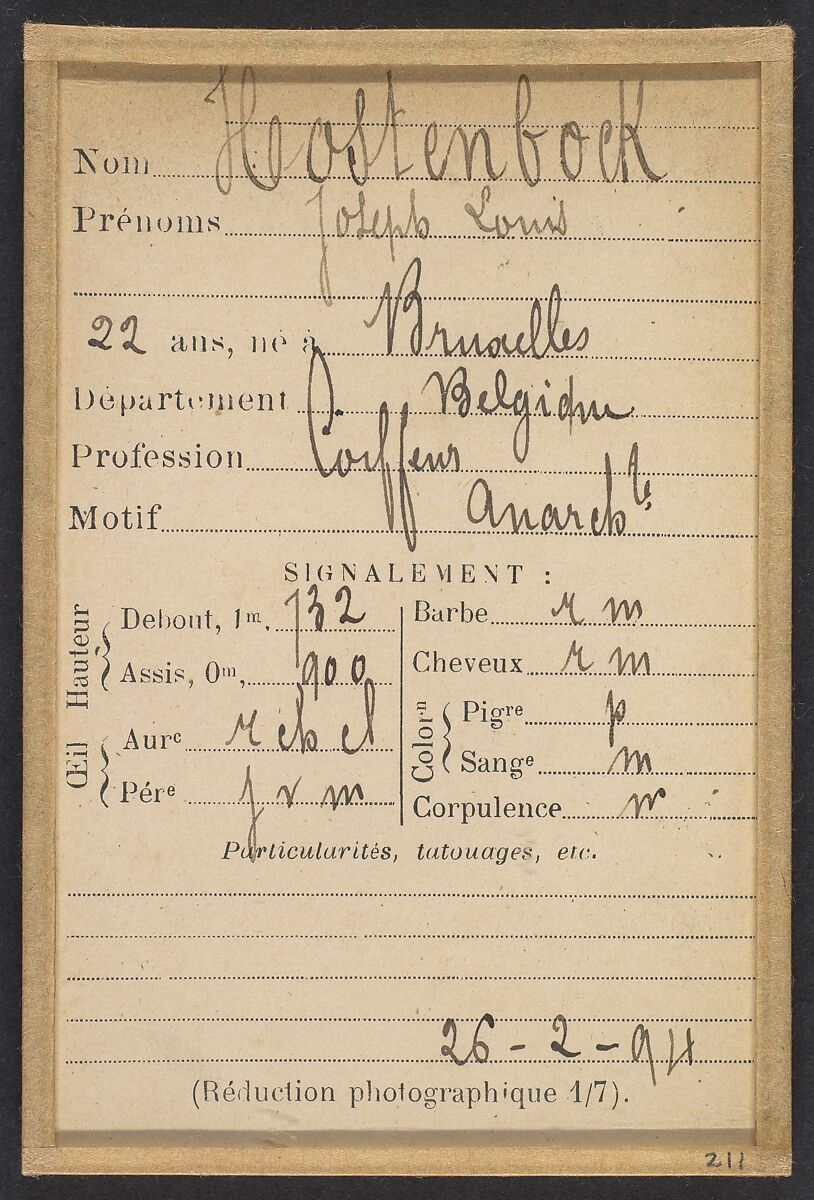 Nom Hostenbock
Prénoms Joseph Louis
22 ans, né à Bruxelles
Département Belgique
Profession Coiffeur
Motif Anarch te
SIGNALEMENT :
Hauteur
Debout, 1m. 732
Assis, 0m, 900
Œil
Aurᵉ r ch cl
Pérᵉ j v m
Barbe r m
Cheveux r m
Colorⁿ
Pigʳᵉ p
Sangᵉ m
Corpulence m
Particularités, tatouages, etc.
26 - 2 - 94
(Réduction photographique 1/7).
211